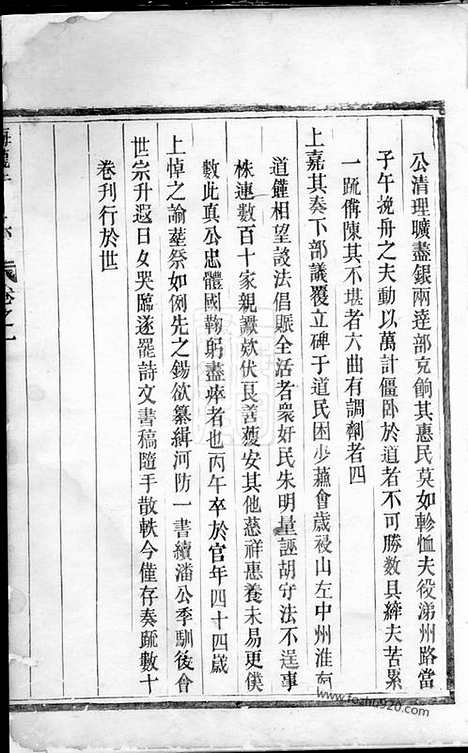 公清理曠盡銀兩達部充餉其惠民莫如軫恤夫役滁州路當
子午挽舟之夫動以萬計僵卧於道者不可勝數具繂夫苦累
一䟽備陳其不堪者六曲有調劑者四
上嘉其奏下部議覆立碑于道民困少蘓會歲祲山左中州淮
道僅相望設法倡賑全活者衆奸民朱明量誣胡守法不逞事
株連數百十家親讞欵伏良善獲安其他慈祥惠養未易更僕
數此真公忠體國鞠躬盡瘁者也丙午卒於官年四十四歲
上悼之諭塟祭如例先之鍚欲纂緝河防一書續潘公季馴後會
世宗升遐日夂哭臨遂罷詩文書稿隨手散軼今僅存奏䟽數十
卷刊行於世
卷之一
www.fozhu920.com